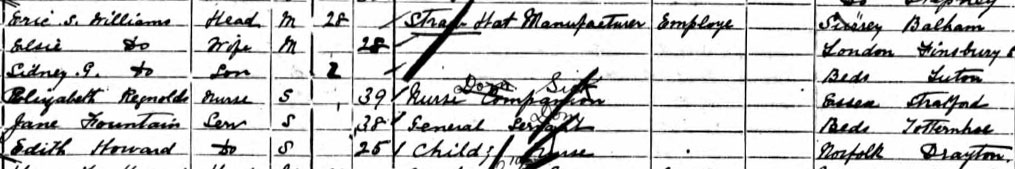 Eric S. Williams Head M 28 Straw Hat Manufacturer Employe Surrey Balham
Elsie Do Wife M 28 London Finsbury
Sidney G. Do Son 2 Beds Luton
Elizabeth Reynolds Nurse S 39 Nurse Companion Sick Essex Stratford
Jane Fountain Serv S 38 General Servant Beds Totternhoe
Edith Howard Do S 25 Childs Nurse Norfolk Drayton